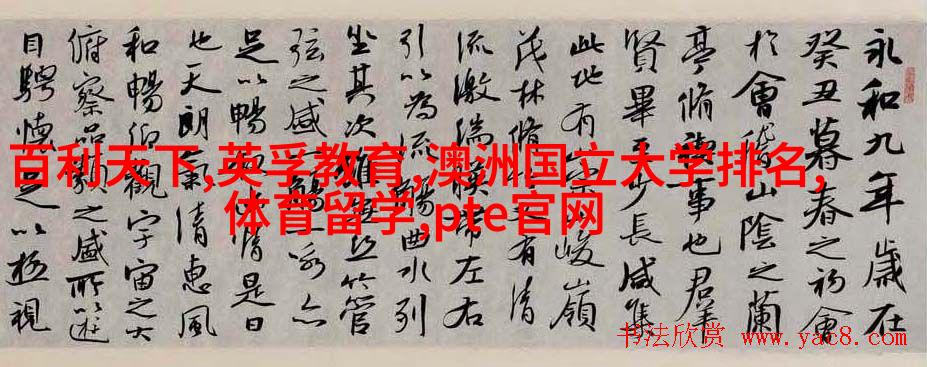 永和九年歲在
癸丑暮春之初會
於會稽山陰之蘭
亭脩事也羣
賢畢至少長咸集
此地有崇峻嶺
茂林脩又有清
流激湍暎帶左右
引以為流觴曲水列
坐其次雖無絲竹管
弦之盛一觴一詠亦
足以暢情是日
也天朗氣清惠風
和暢仰觀宇宙之大
俯察品類之盛所以遊
目騁懷足以極視
百利天下,英孚教育,澳洲国立大学排名,
体育留学,pte官网
书法欣赏 www.yac8.com